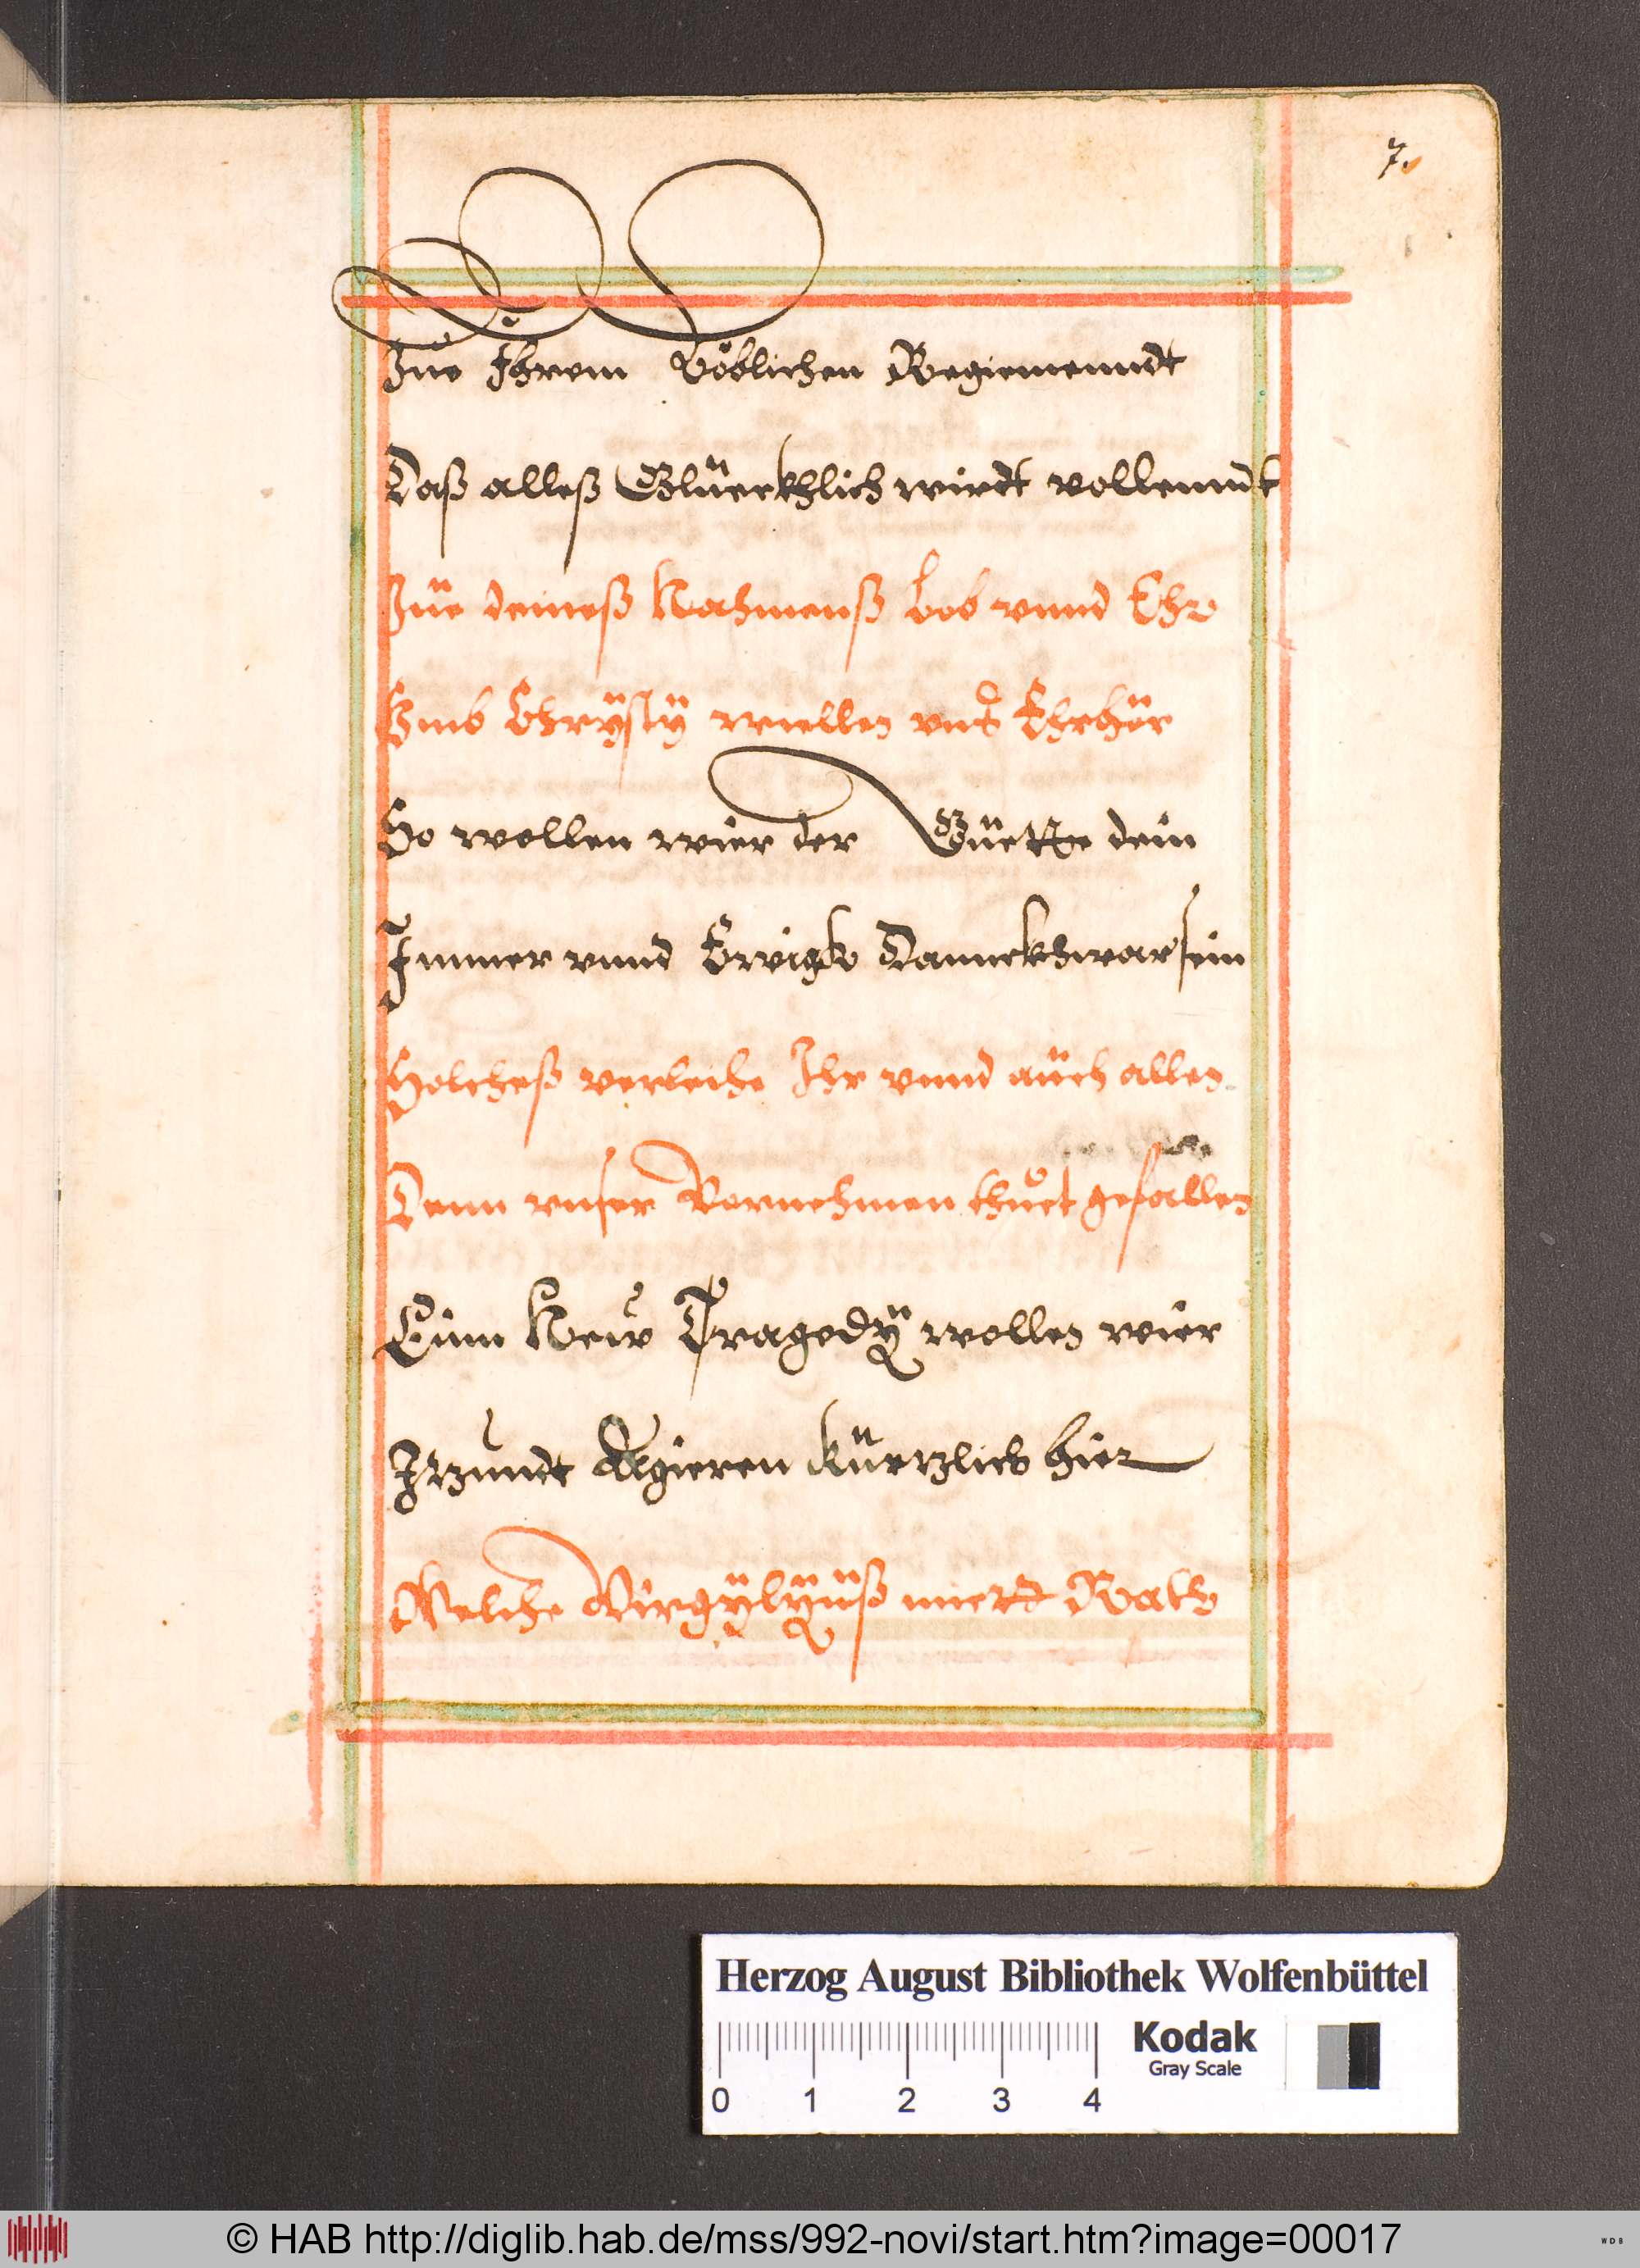 7.
Zue Ihrem Löblichen Regiemenndt
Daß alleß Glüeckhlich wirdt vollenndt
Züe deineß Nahmenß Lob vnnd Ehr
Vmb Chrÿstÿ wiellen vnß Erhör
So wollen wier der Güette dein
Immer vnnd Ewigk Dannckhwar sein
Solcheß verleihe Ihr vnnd aüch allen
Denn vnser Vornehmen thuet gefallen
Einn New Tragedÿ wollen wier
Itzundt Agieren Küertzlich hier
Welche Virgÿlÿüß miett Rath
Herzog August Bibliothek Wolfenbüttel
Kodak
Gray Scale
0 1 2 3 4
© HAB http://diglib.hab.de/mss/992-novi/start.htm?image=00017
WDB